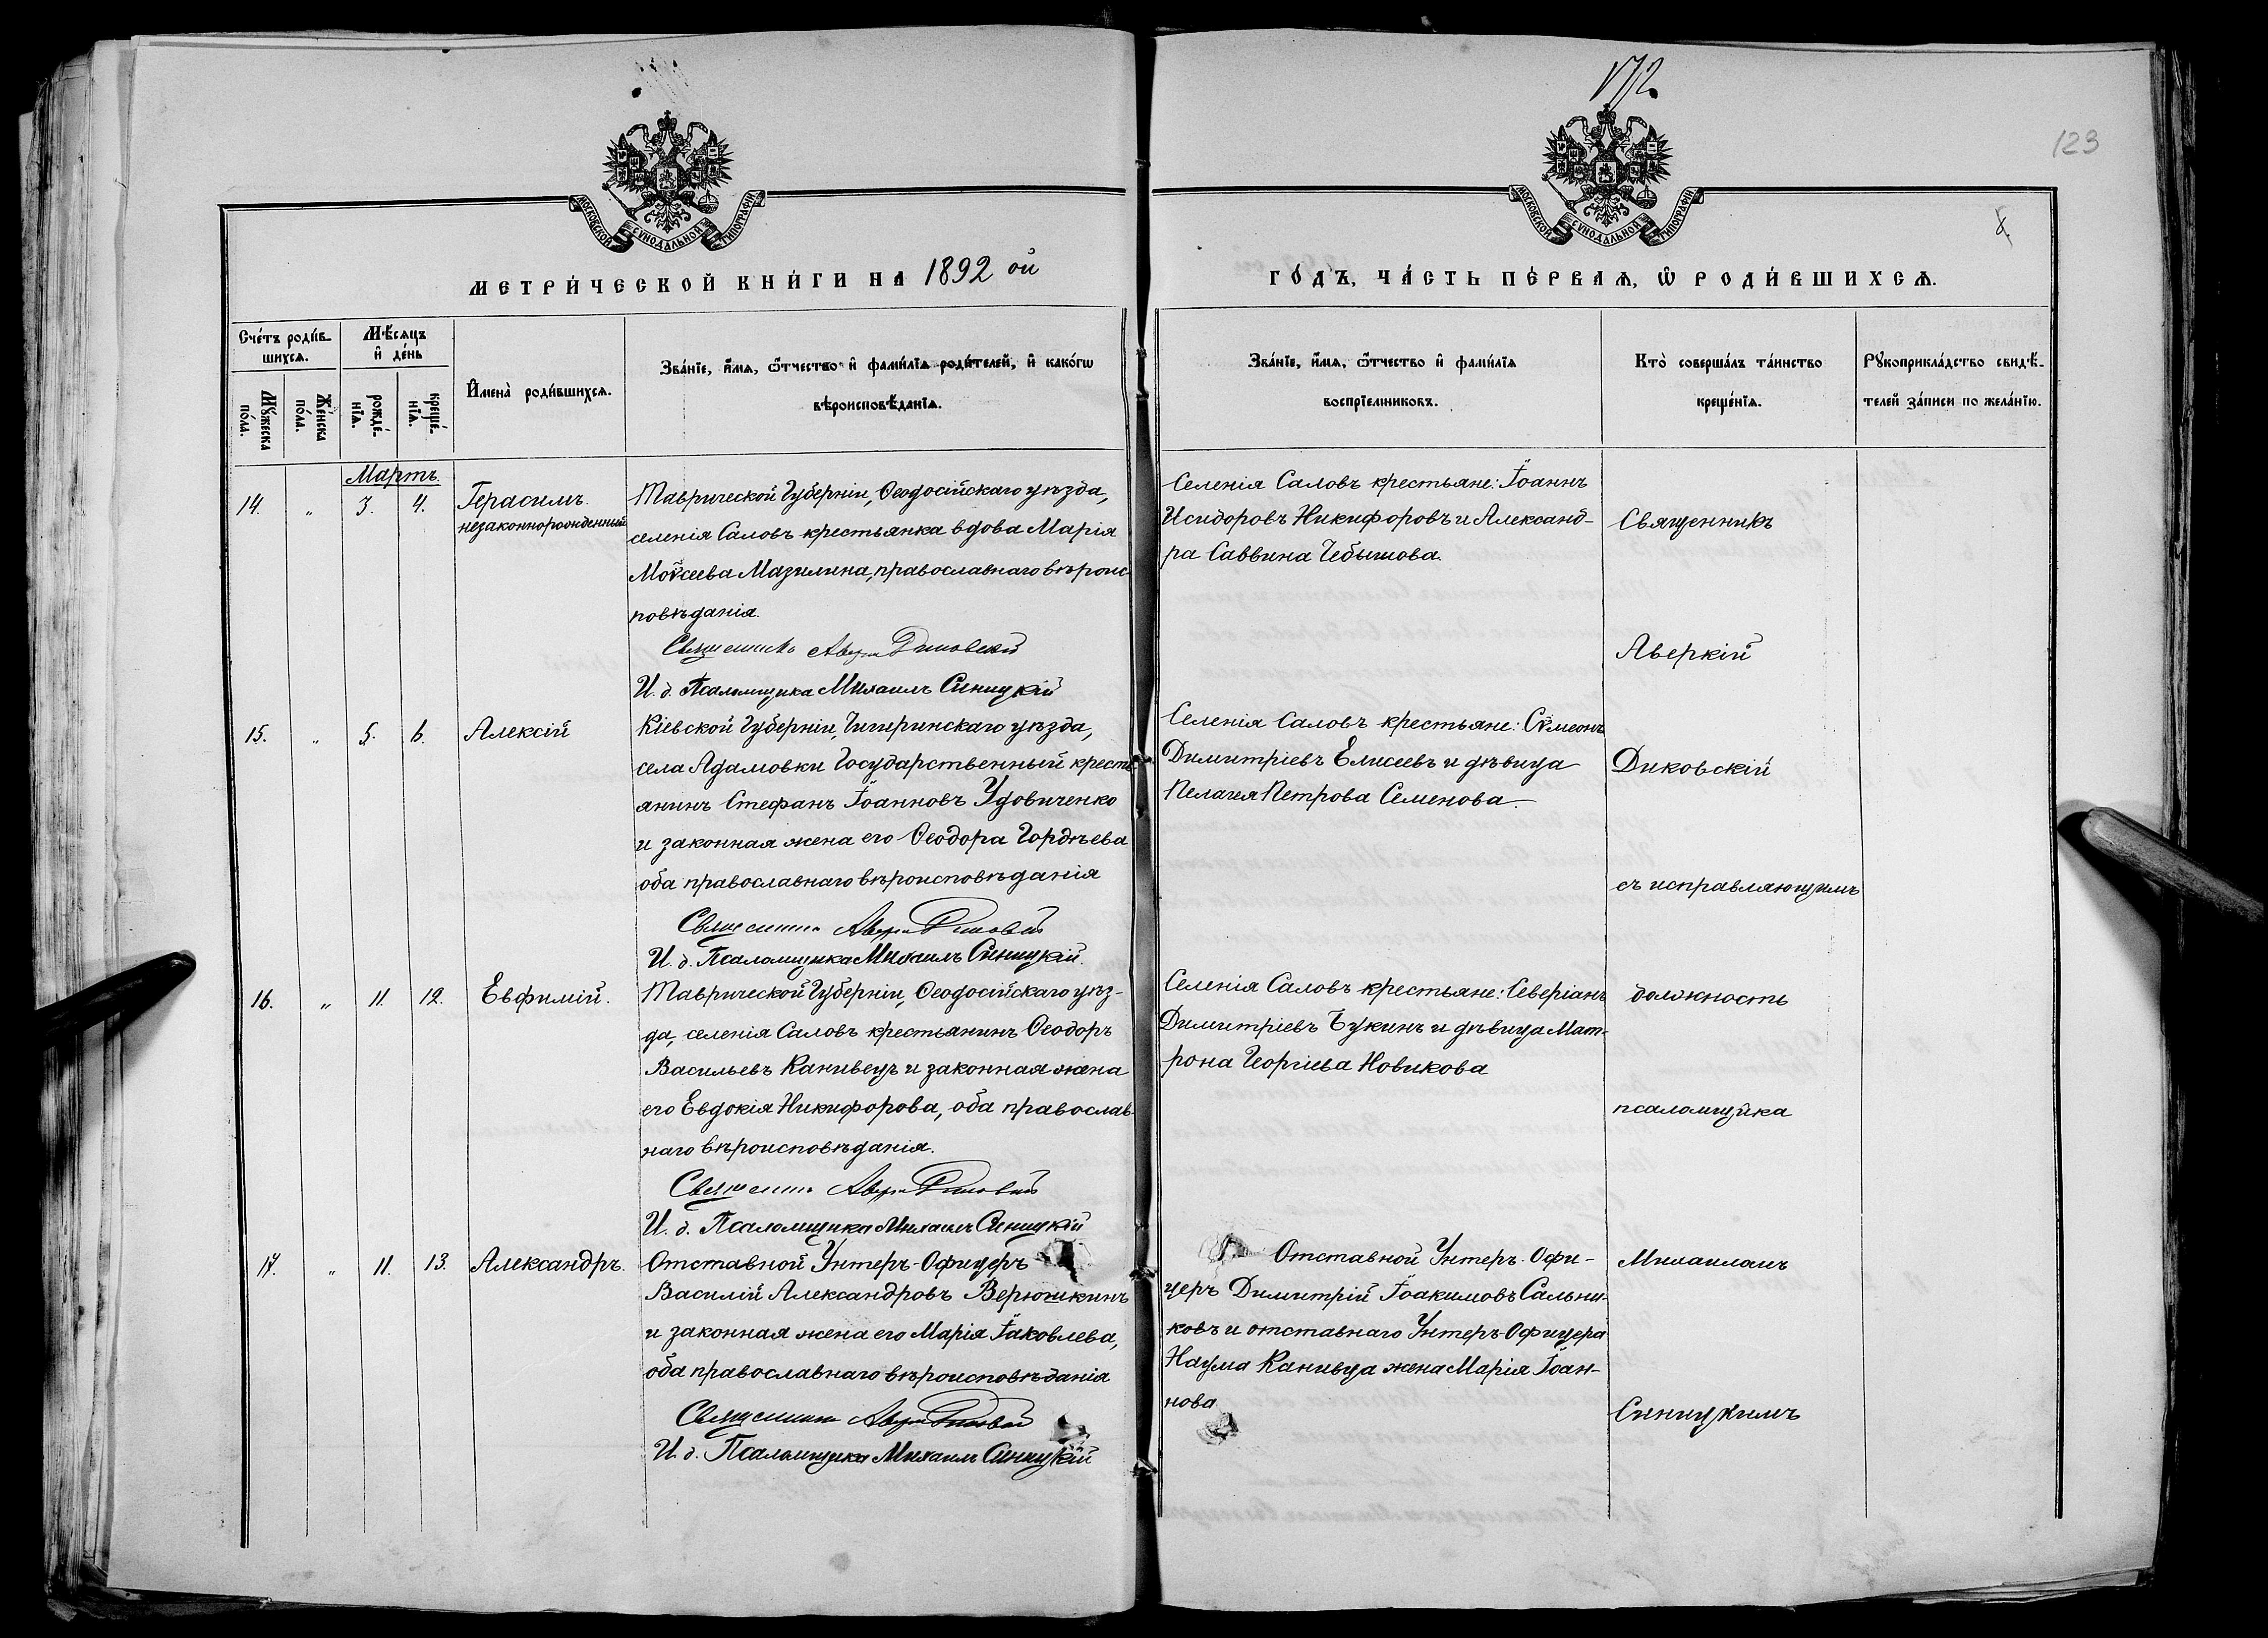 172.
123
8.
МОСКОВСКОЙ СѴНОДАЛЬНОЙ ТИПОГРАФІИ
МОСКОВСКОЙ СѴНОДАЛЬНОЙ ТИПОГРАФІИ
МЕТРИ́ЧЕСКОЙ КНИ́ГИ НА 1892 ой
ГО́ДЪ, ЧА́СТЬ ПЕ́РВАЯ, Ѽ РОДИ́ВШИХСЯ.
Сче́тъ роди́в-
шихся.
Мꙋ́жеска по́ла.
Же́нска по́ла.
Мѣ́сяцъ
и҆ де́нь
рожде́-
нїя.
креще́-
нїя.
И҆мена̀ роди́вшихся.
Зва́нїе, и҆́мя, ѻ҆́тчество и҆ фами́лїя роди́телей, и҆ како́гѡ
вѣроисповѣ́данїя.
Зва́нїе, и҆́мя, ѻ҆́тчество и҆ фами́лїя
воспрїе́мниковъ.
Кто̀ соверша́лъ та́инство
креще́нїя.
Рꙋкоприкла́дство свидѣ́-
телей за́писи по жела́нїю.
Мартъ.
14. " 3. 4. Герасимъ.
незаконнорожденный
Таврической Губерніи, Ѳеодосійскаго уѣзда,
селенія Саловъ крестьянка вдова Марія
Моѵсеева Мазилина, православнаго вѣроис-
повѣданія.
Священникъ Аверкій Диковскій
И. д. Псаломщика Михаилъ Синицкій
Селенія Саловъ крестьяне: Іоаннъ
Исидоровъ Никифоровъ и Александ-
ра Саввина Чебышова.
15. " 5. 6. Алексій
Кіевской Губерніи, Чигиринскаго уѣзда,
села Адамовки Государственный кресть-
янинъ Стефанъ Іоанновъ Удовиченко
и законная жена его Ѳеодора Гордѣева
оба православнаго вѣроисповѣданія
Священникъ Аверкій Диковскій
И. д. Псаломщика Михаилъ Синицкій.
Селенія Саловъ крестьяне: Сѵмеонъ
Димитріевъ Елисеевъ и дѣвица
Пелагея Петрова Семенова.
16. " 11. 12. Евфимій.
Таврической Губерніи, Ѳеодосійскаго уѣз-
да, селенія Саловъ крестьянинъ Ѳеодоръ
Васильевъ Канивецъ и законная жена
его Евдокія Никифорова, оба православ-
наго вѣроисповѣданія.
Священникъ Аверкій Диковскій
И. д. Псаломщика Михаилъ Синицкій
Селенія Саловъ крестьяне: Северіанъ
Димитріевъ Букинъ и дѣвица Мат-
рона Георгіева Новикова
17. " 11. 13. Александръ.
Отставной Унтеръ-Офицеръ
Василій Александровъ Верюшкинъ
и законная жена его Марія Іаковлева,
оба православнаго вѣроисповѣданія
Священникъ Аверкій Диковскій
И. д. Псаломщика Михаилъ Синицкій
Отставной Унтеръ-Офи-
церъ Димитрій Іоакимовъ Сальни-
ковъ и отставнаго Унтеръ-Офицера
Наума Канивца жена Марія Іоан-
нова
Священникъ
Аверкій
Диковскій
съ исправляющимъ
должность
псаломщика
Михаиломъ
Синицкимъ